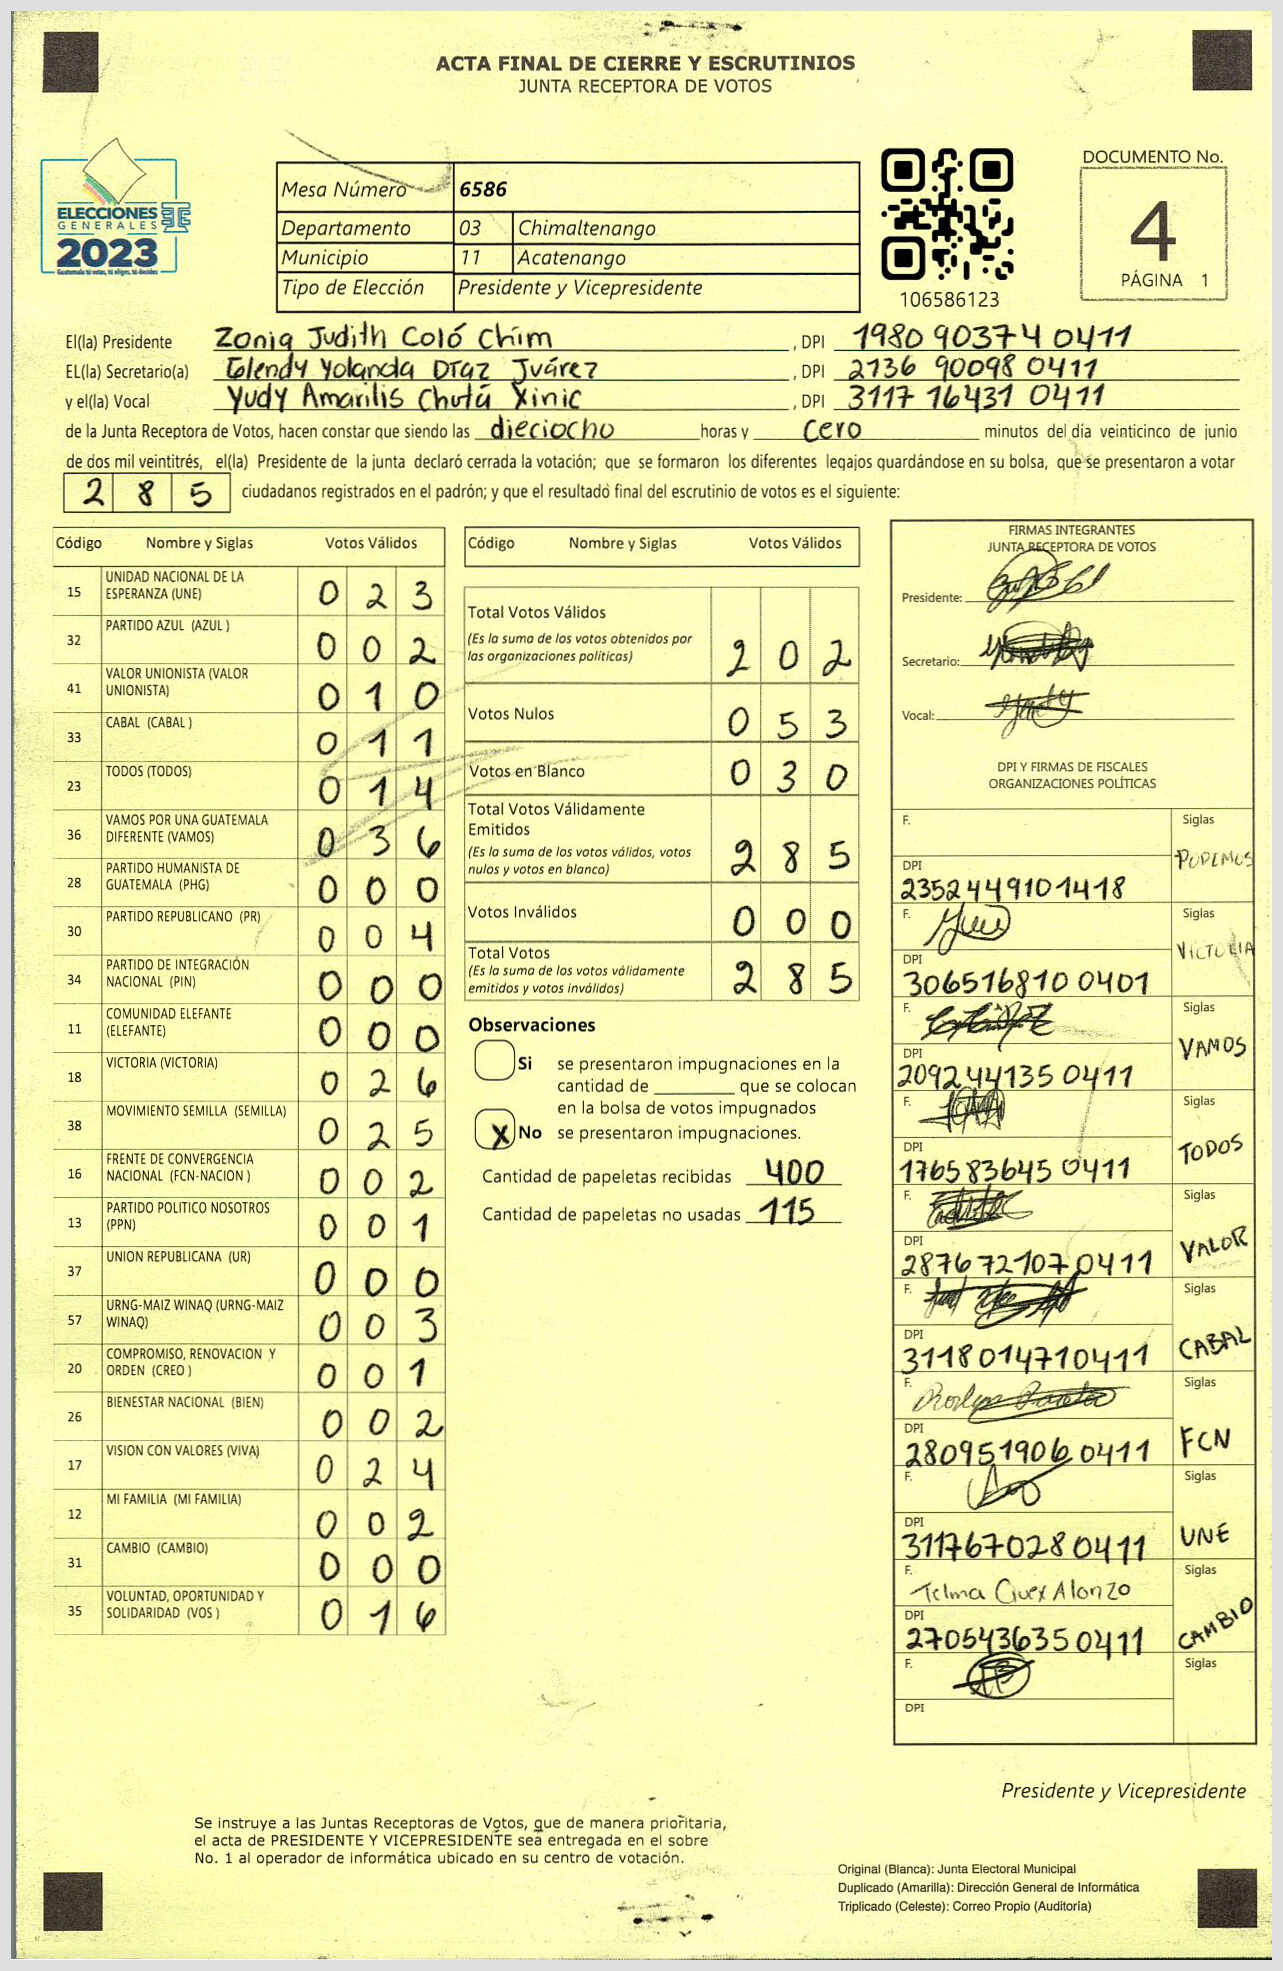 ACTA FINAL DE CIERRE Y ESCRUTINIOS
JUNTA RECEPTORA DE VOTOS
ELECCIONES
GENERALES
2023
Guatemala tú votas, tú eliges, tú decides
Mesa Número 6586
Departamento 03 Chimaltenango
Municipio 11 Acatenango
Tipo de Elección Presidente y Vicepresidente
106586123
DOCUMENTO No.
4
PÁGINA 1
El(la) Presidente Zonia Judith Coló Chim, DPI 1980 90374 0411
EL(la) Secretario(a) Glendy Yolanda Díaz Juárez, DPI 2136 90098 0411
y el(la) Vocal Yudy Amarilis Chutá Xinic, DPI 3117 16431 0411
de la Junta Receptora de Votos, hacen constar que siendo las dieciocho horas y cero minutos del día veinticinco de junio
de dos mil veintitrés, el(la) Presidente de la junta declaró cerrada la votación; que se formaron los diferentes legajos guardándose en su bolsa, que se presentaron a votar
285 ciudadanos registrados en el padrón; y que el resultado final del escrutinio de votos es el siguiente:
Código Nombre y Siglas Votos Válidos
15 UNIDAD NACIONAL DE LA ESPERANZA (UNE) 023
32 PARTIDO AZUL (AZUL ) 002
41 VALOR UNIONISTA (VALOR UNIONISTA) 010
33 CABAL (CABAL ) 011
23 TODOS (TODOS) 014
36 VAMOS POR UNA GUATEMALA DIFERENTE (VAMOS) 036
28 PARTIDO HUMANISTA DE GUATEMALA (PHG) 000
30 PARTIDO REPUBLICANO (PR) 004
34 PARTIDO DE INTEGRACIÓN NACIONAL (PIN) 000
11 COMUNIDAD ELEFANTE (ELEFANTE) 000
18 VICTORIA (VICTORIA) 026
38 MOVIMIENTO SEMILLA (SEMILLA) 025
16 FRENTE DE CONVERGENCIA NACIONAL (FCN-NACION ) 002
13 PARTIDO POLITICO NOSOTROS (PPN) 001
37 UNION REPUBLICANA (UR) 000
57 URNG-MAIZ WINAQ (URNG-MAIZ WINAQ) 003
20 COMPROMISO, RENOVACION Y ORDEN (CREO ) 001
26 BIENESTAR NACIONAL (BIEN) 002
17 VISION CON VALORES (VIVA) 024
12 MI FAMILIA (MI FAMILIA) 002
31 CAMBIO (CAMBIO) 000
35 VOLUNTAD, OPORTUNIDAD Y SOLIDARIDAD (VOS ) 016
Código Nombre y Siglas Votos Válidos
Total Votos Válidos
(Es la suma de los votos obtenidos por
las organizaciones políticas) 202
Votos Nulos 053
Votos en Blanco 030
Total Votos Válidamente
Emitidos
(Es la suma de los votos válidos, votos
nulos y votos en blanco) 285
Votos Inválidos 000
Total Votos
(Es la suma de los votos válidamente
emitidos y votos inválidos) 285
Observaciones
Si se presentaron impugnaciones en la
cantidad de ________ que se colocan
en la bolsa de votos impugnados
X No se presentaron impugnaciones.
Cantidad de papeletas recibidas 400
Cantidad de papeletas no usadas 115
FIRMAS INTEGRANTES
JUNTA RECEPTORA DE VOTOS
Presidente:
Secretario:
Vocal:
DPI Y FIRMAS DE FISCALES
ORGANIZACIONES POLÍTICAS
F. Siglas
PODEMOS
DPI
2352449101418
F. Siglas
VICTORIA
DPI
306516810 0401
F. Siglas
VAMOS
DPI
209244135 0411
F. Siglas
TODOS
DPI
176583645 0411
F. Siglas
VALOR
DPI
287672107 0411
F. Siglas
CABAL
DPI
3118014710411
F. Siglas
FCN
DPI
280951906 0411
F. Siglas
UNE
DPI
311767028 0411
F. Telma Cuex Alonzo Siglas
CAMBIO
DPI
270543635 0411
F. Siglas
DPI
Presidente y Vicepresidente
Se instruye a las Juntas Receptoras de Votos, que de manera prioritaria,
el acta de PRESIDENTE Y VICEPRESIDENTE sea entregada en el sobre
No. 1 al operador de informática ubicado en su centro de votación.
Original (Blanca): Junta Electoral Municipal
Duplicado (Amarilla): Dirección General de Informática
Triplicado (Celeste): Correo Propio (Auditoría)